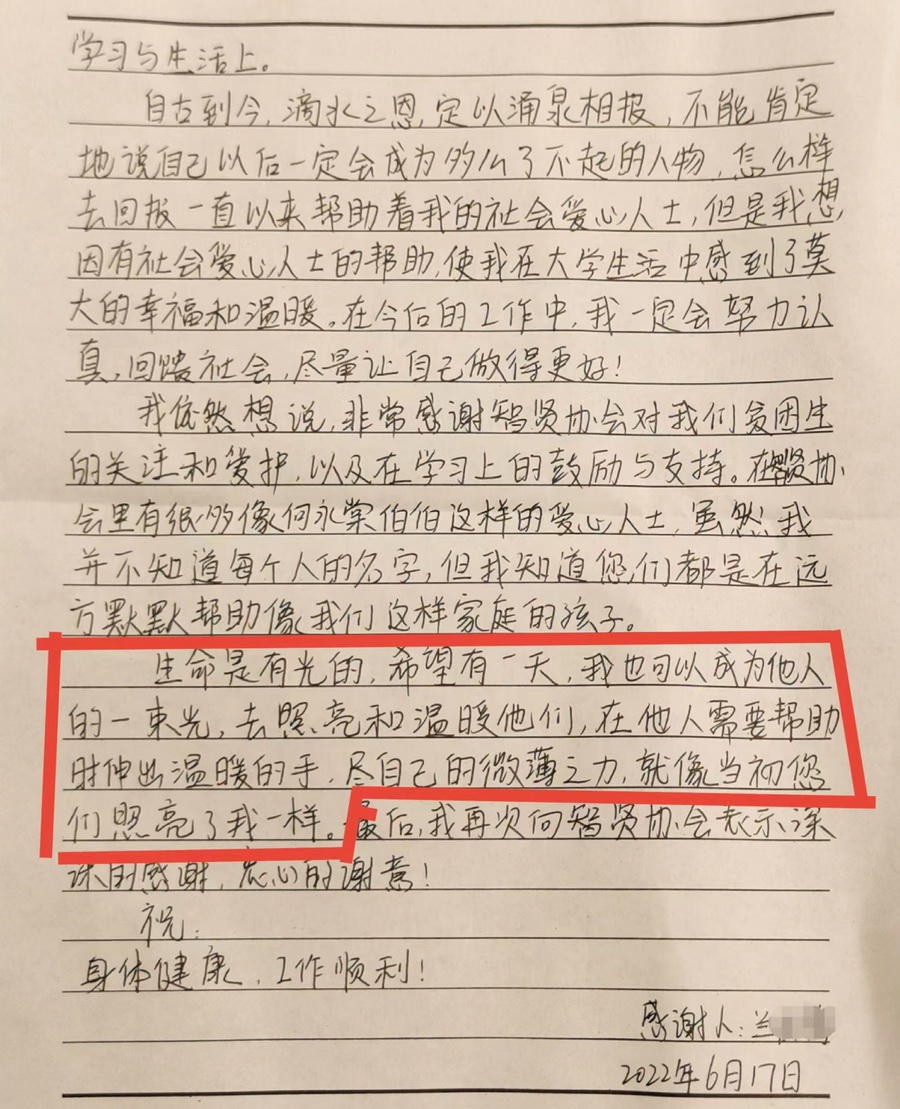 学习与生活上。
自古到今，滴水之恩，定以涌泉相报，不能肯定
地说自己以后一定会成为多么了不起的人物，怎么样
去回报一直以来帮助着我的社会爱心人士，但是我想，
因有社会爱心人士的帮助，使我在大学生活中感到了莫
大的幸福和温暖。在今后的工作中，我一定会努力认
真，回馈社会，尽量让自己做得更好！
我依然想说，非常感谢智贤协会对我们贫困生
的关注和爱护，以及在学习上的鼓励与支持。在智贤协
会里有很多像何永棠伯伯这样的爱心人士，虽然我
并不知道每个人的名字，但我知道您们都是在远
方默默帮助像我们这样家庭的孩子。
生命是有光的，希望有一天，我也可以成为他人
的一束光，去照亮和温暖他们，在他人需要帮助
时伸出温暖的手，尽自己的微薄之力，就像当初您
们照亮了我一样。最后，我再次向智贤协会表示深
深的感谢，衷心的谢意！
祝：
身体健康，工作顺利！
感谢人：兰
2022年6月17日